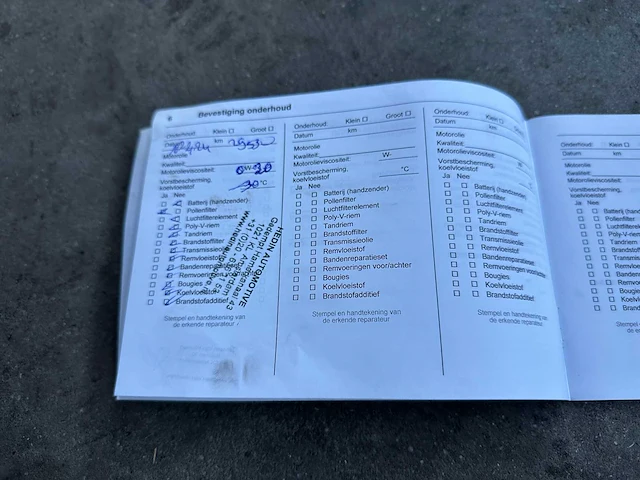 8 Bevestiging onderhoud
Onderhoud: Klein ☐ Groot ☐
Datum km
Motorolie
Kwaliteit:
Motorolieviscositeit: 0 W- 20
Vorstbescherming, koelvloeistof -30 °C
Ja Nee
Batterij (handzender)
Pollenfilter
Luchtfilterelement
Poly-V-riem
Tandriem
Brandstoffilter
Transmissieolie
Remvloeistof
Bandenreparatieset
Remvoeringen
Bougies
Koelvloeistof
Brandstofadditief
Stempel en handtekening van
de erkende reparateur
HEDIN AUTOMOTIVE
Onderhoud: Klein ☐ Groot ☐
Datum km
Motorolie
Kwaliteit: W-
Motorolieviscositeit:
Vorstbescherming, °C
koelvloeistof
Ja Nee
Batterij (handzender)
Pollenfilter
Luchtfilterelement
Poly-V-riem
Tandriem
Brandstoffilter
Transmissieolie
Remvloeistof
Bandenreparatieset
Remvoeringen voor/achter
Bougies
Koelvloeistof
Brandstofadditief
Stempel en handtekening van
de erkende reparateur
Onderhoud: Klein ☐ Groot
Datum km
Motorolie
Kwaliteit:
Motorolieviscositeit:
Vorstbescherming,
koelvloeistof
Ja Nee
Batterij (handzender)
Pollenfilter
Luchtfilterelement
Poly-V-riem
Tandriem
Brandstoffilter
Transmissieolie
Remvloeistof
Bandenreparatieset
Remvoeringen voor/achter
Bougies
Koelvloeistof
Brandstofadditief
Stempel en handtekening van
de erkende reparateur
Onderhoud:
Datum
Motorolie
Kwaliteit:
Motorolieviscositeit:
Vorstbescherming,
koelvloeistof
Ja Nee